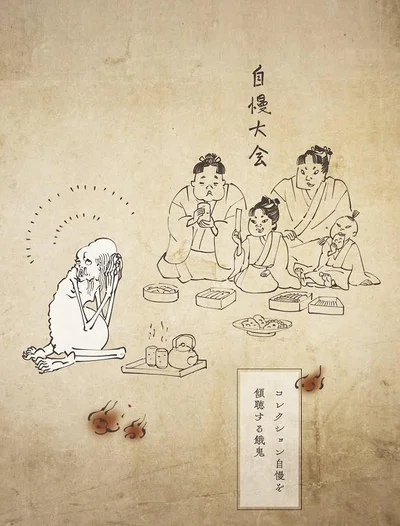 自慢大会
コレクション自慢を
傾聴する餓鬼